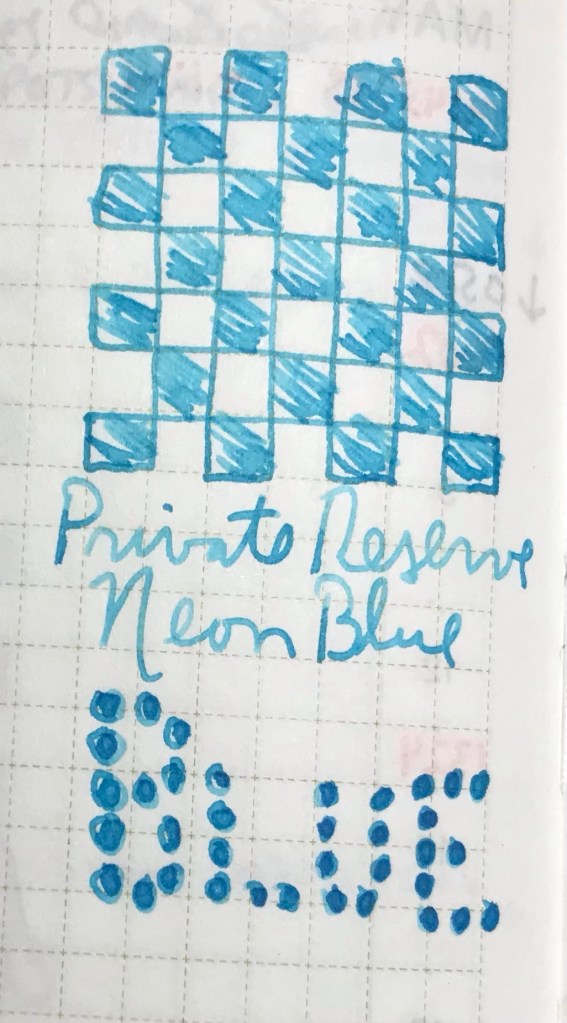 Private Reserve
Neon Blue
BLUE